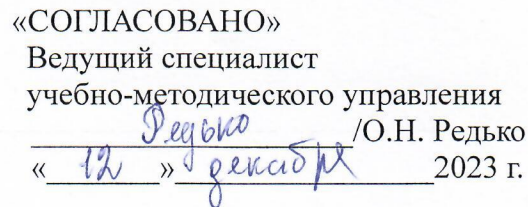 «СОГЛАСОВАНО»
Ведущий специалист
учебно-методического управления
Редько/О.Н. Редько
«12» декабря 2023 г.